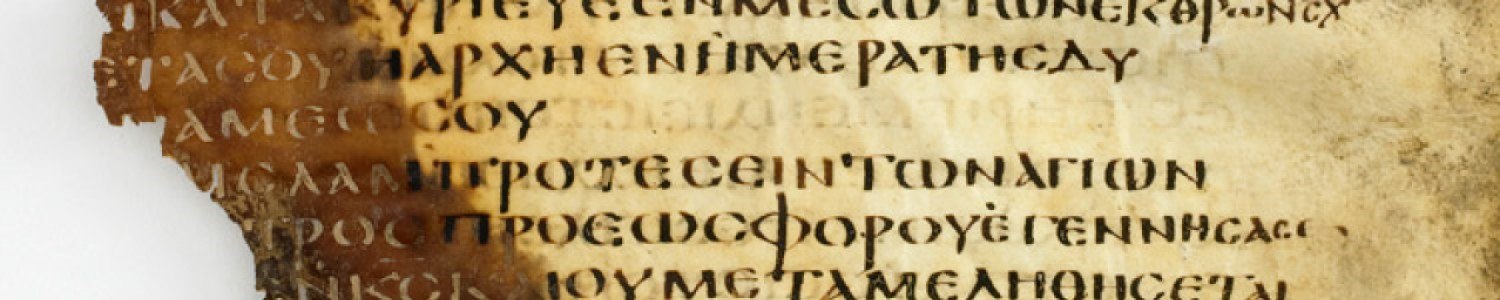 ΙΚΑΤΑΚΥΡΙΕΥΕΕΝΜΕϹΩΤΩΝΕΚΘΡΩΝϹΥ
ΕΤΑϹΟΥΗΑΡΧΗΕΝΗΜΕΡΑΤΗϹΔΥ
ΑΜΕΩϹϹΟΥ
ΙϹΛΑΜΠΡΟΤΕϹΕΙΝΤΩΝΑΓΙΩΝ
ΤΡΟϹΠΡΟΕΩϹΦΟΡΟΥΕΓΕΝΝΗϹΑϹΕ
ΝΚϹΚΑΙΟΥΜΕΤΑΜΕΛΗΘΗϹΕΤΑΙ